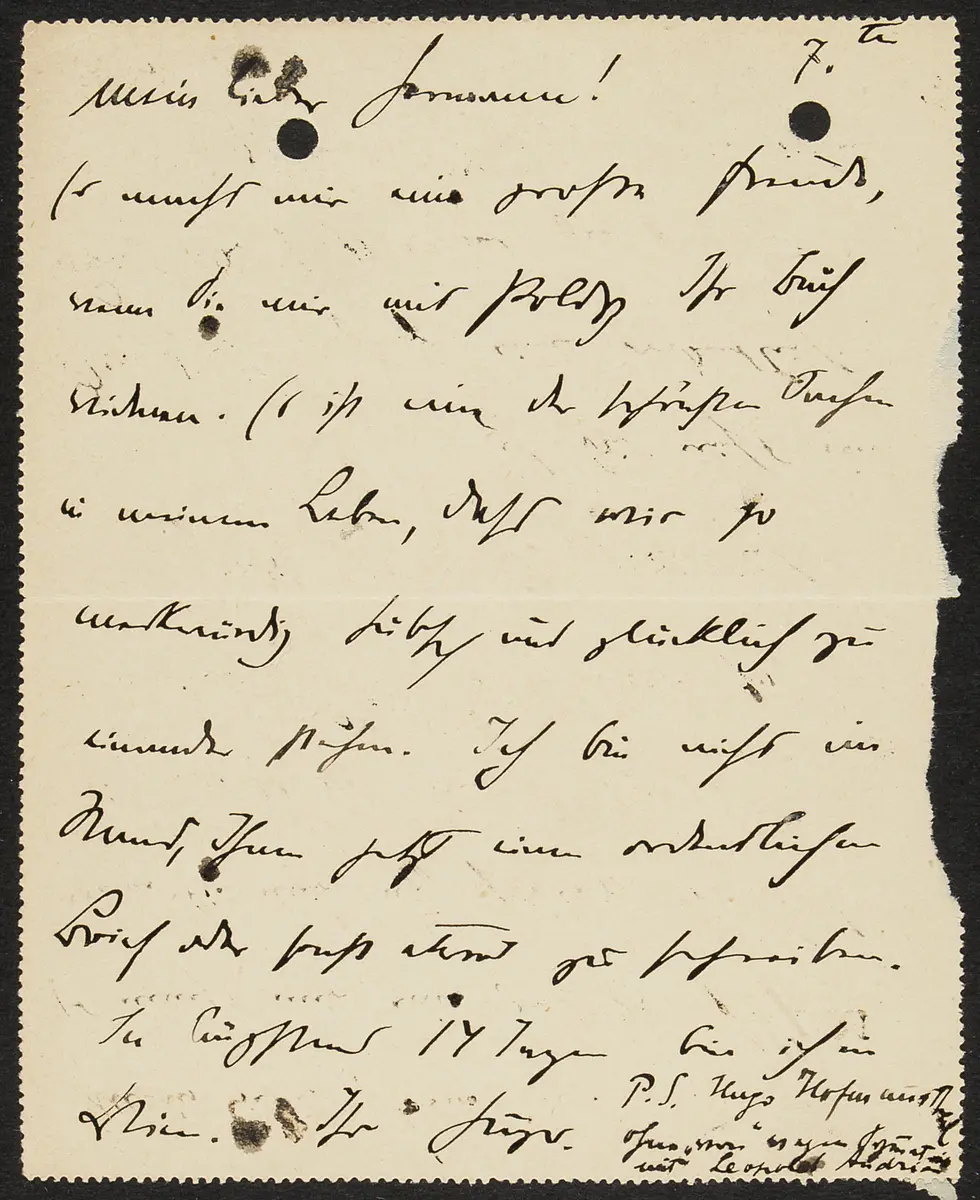 7. ten
mein lieber Hermann!
Es macht mir eine große Freude,
wenn Sie mir mit Poldy Ihr Buch
widmen. Es ist eine der hübschesten Sachen
in meinem Leben, dass wir so
merkwürdig hübsch und glücklich zu
einander stehen. Ich bin nicht im
Stand, Ihnen jetzt einen ordentlichen
Brief oder sonst etwas zu schreiben.
In längstens 14 Tagen bin ich in
Wien. Ihr Hugo.
P.S. Hugo Hofmannsthal
ohne „von“ wegen
mit Leopold Andrian